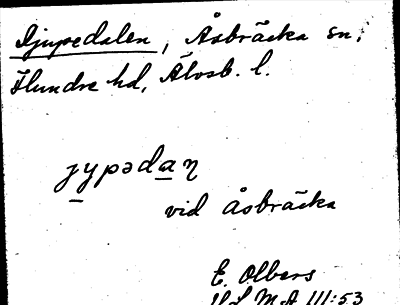 Djupedalen, Åsbräcka sn,
Flundre hd, Älvsb. l.
jypədaŋ
vid Åsbräcka
E. Olbers
ULMA 111:53